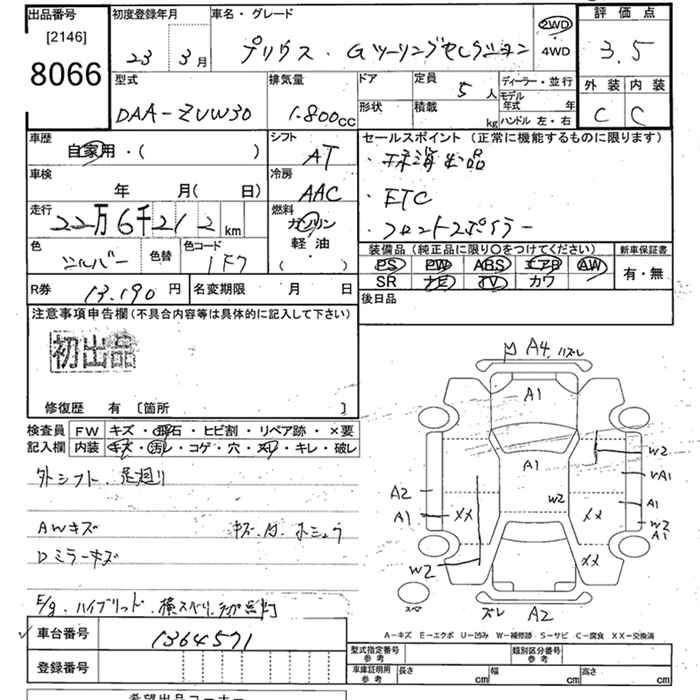 出品番号 初度登録年月 車名・グレード 評価点
[2146]
8066
23 3月 プリウス・Gツーリングセレクション 2WD・4WD 3.5
型式 排気量 ドア 定員 ディーラー・並行 外装 内装
DAA-ZVW30 1.800cc 5人 モデル年式 年 C C
形状 積載 kg ハンドル 左・右
車歴 シフト セールスポイント (正常に機能するものに限ります)
自家用・( ) AT
車検 冷房
年 月( 日) AAC ・ETC
走行 燃料 ・フロントスポイラー
22万6千212km ガソリン
軽・油
( )
色 色替 色コード 装備品 (純正品に限り○をつけてください) 新車保証書
シルバー 1F7 PS PW ABS エアB AW 有・無
SR ナビ TV カワ
R券 13.190円 名変期限 月 日 後日品
注意事項申告欄 (不具合内容等は具体的に記入して下さい)
初出品
修復歴 有 [箇所 ]
検査員 FW キズ・飛石・ヒビ割・リペア跡・×要
記入欄 内装 キズ・汚レ・コゲ・穴・スレ・キレ・破レ
外シフト 足廻り
AWキズ
Dミラーキズ
E/g ハイブリッド・横スベリ
車台番号 1364571
登録番号
A4 ハズレ
A1
A1
W2
W2
VA1
A1
W2
A1
A2
A1
XX
XX
XX
W2
スペア
ズレ A2
A-キズ E-エクボ U-凹み W-補修跡 S-サビ C-腐食 XX-交換済
型式指定番号 参考 類別区分番号 参考
車庫証明用 参考 長さ cm 幅 cm 高さ cm
希望出品コーナー